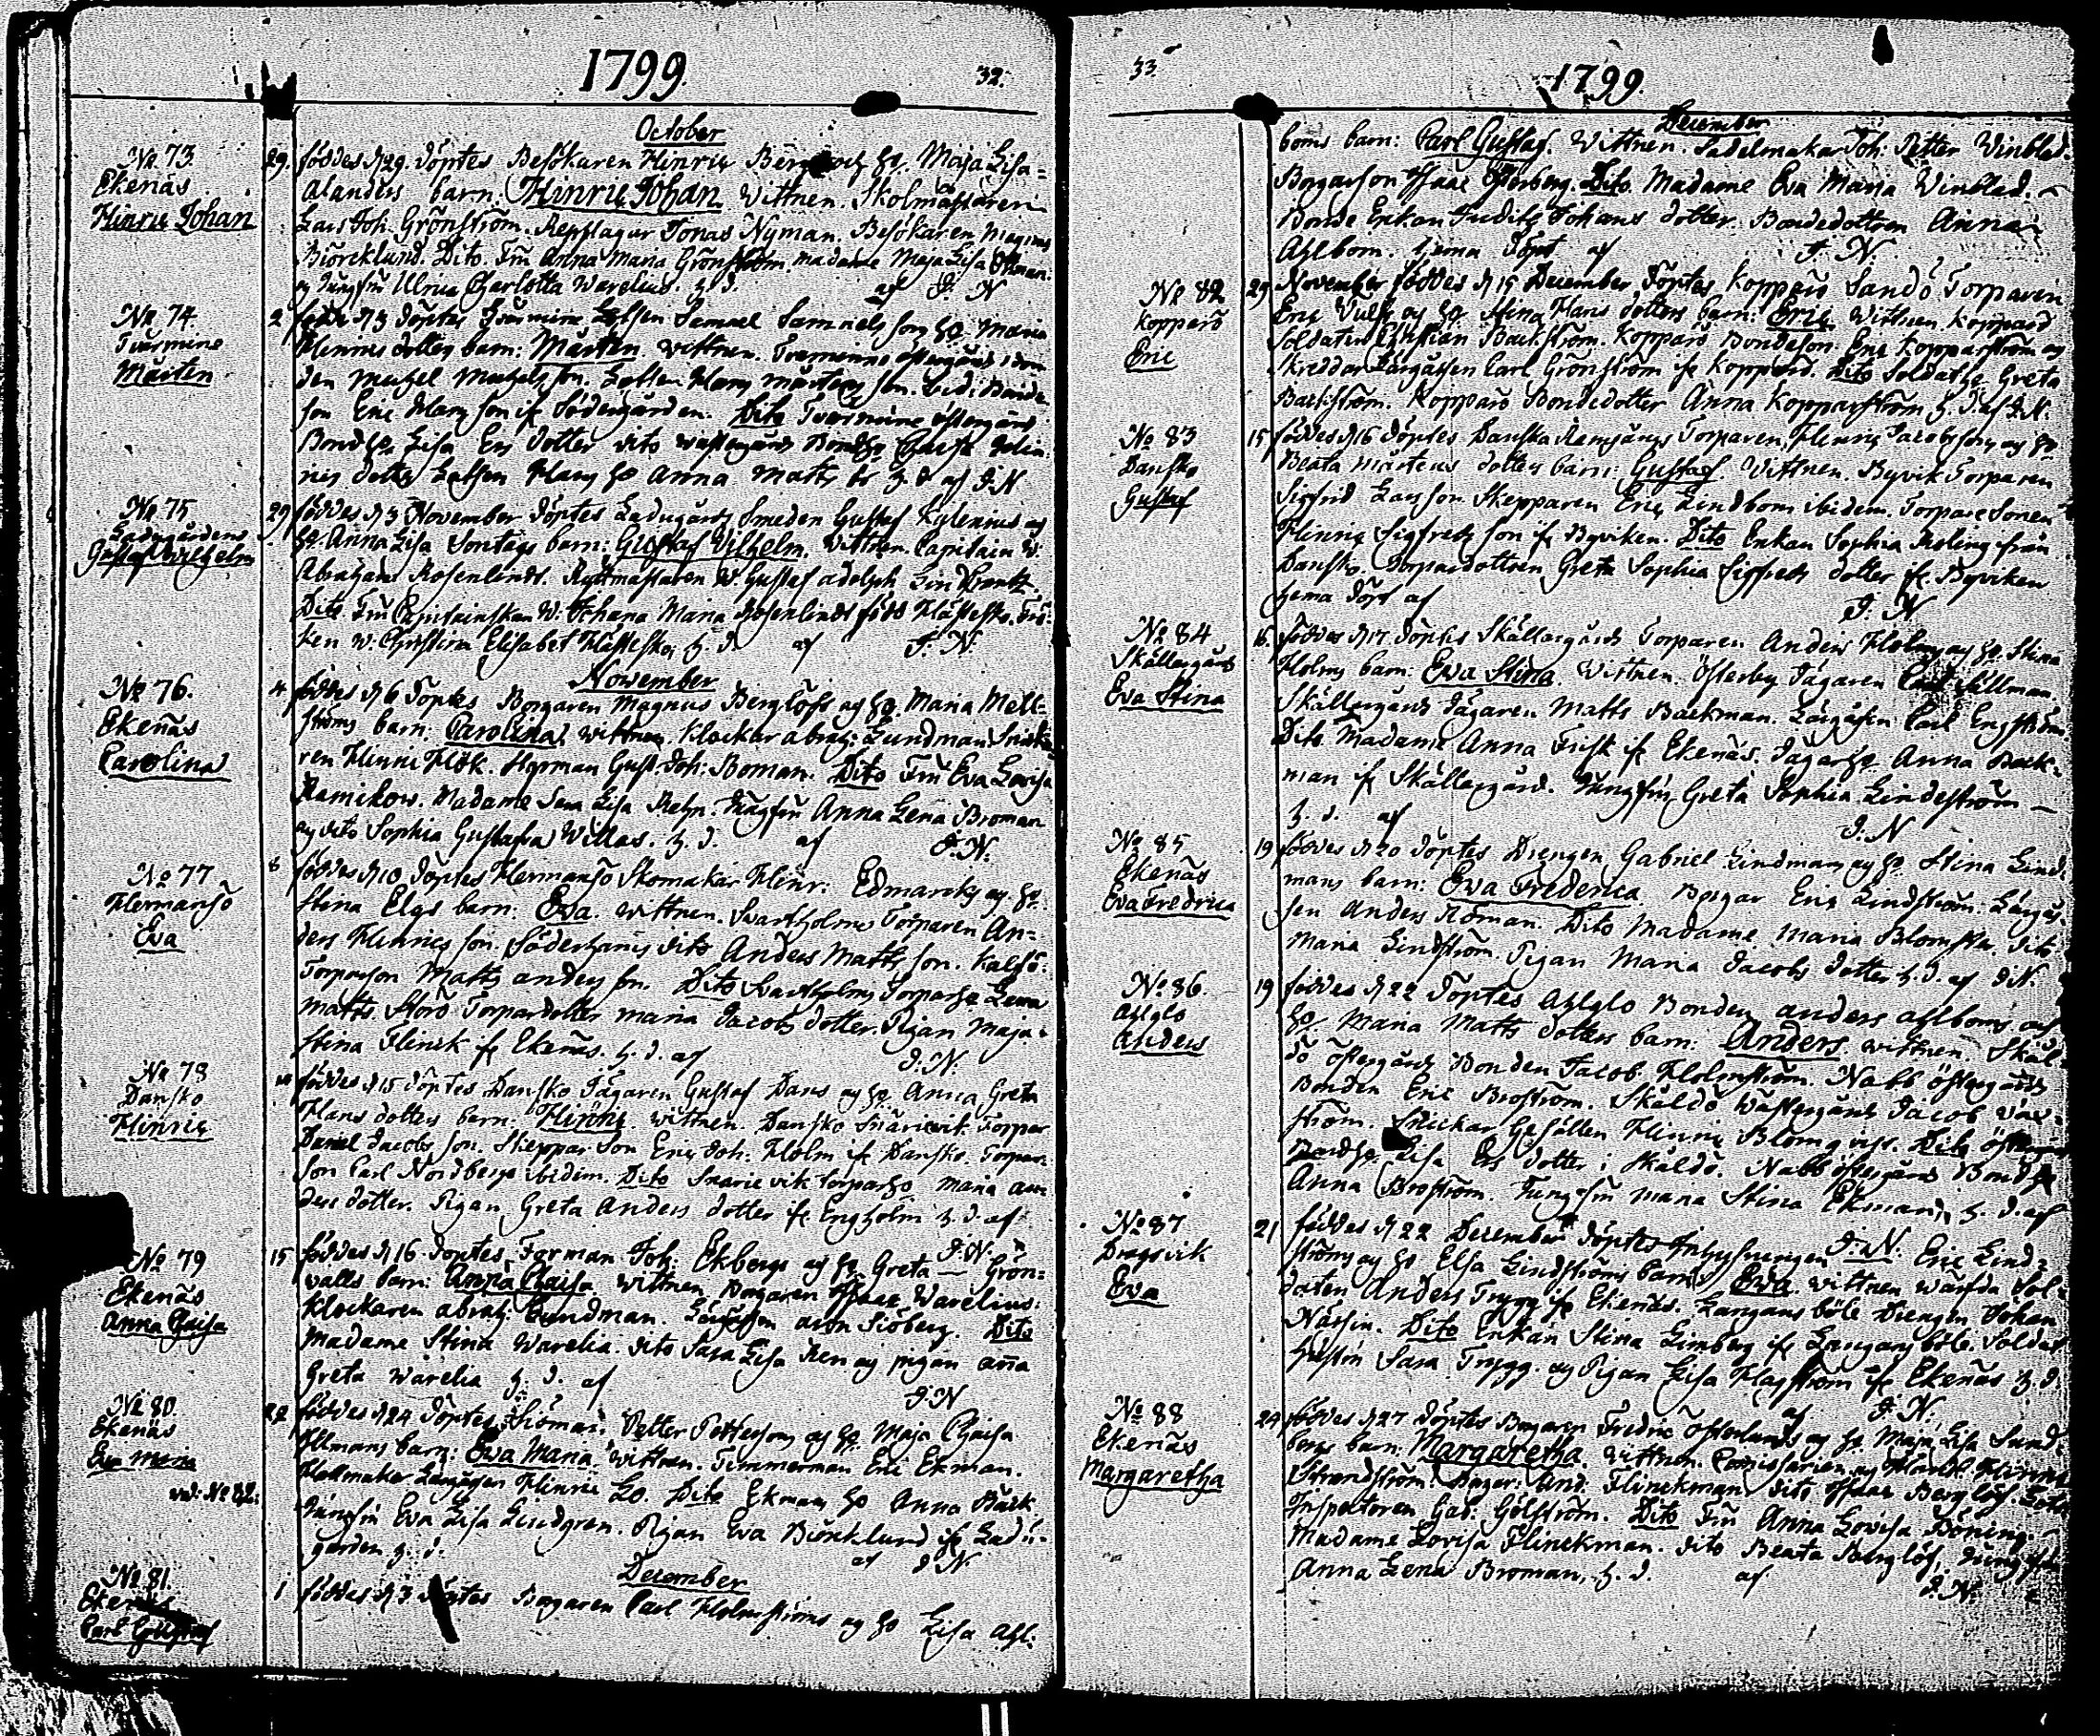 1799.
32.
October
No 73.
Ekenäs
Hinric Johan
29. föddes d 29. döptes Besökaren Hinric hu. Maja Lisa
Alanders barn: Hinric Johan. Wittnen. Skolmästaren
Lars Joh. Grönström. Repslagar Jonas Nyman. Besökaren Magnus
Biörcklund. Dito. Fru Anna Maria Grönström. Madame Maja Lisa
og Jungfru Ulrica Charlotta Warelius. h. d. af J. N
No 74.
Tvärmine
Mårten
2 född d 3 döptes Tvärmine Lotsen Samuel Samuelsson hu Maria
Hinrics dotters barn: Mårten. wittnen. Tvermine östergårds bon
den Michel Michelsson. Lotsen Hans Mårtensson. ibid: Bonde
son Eric Hansson if Södergården. Dito Tvermine östergård
Bondhu Lisa Ers dotter dito wästergård Bondhu Hin
rics dotter Lotsen Hans hu Anna Matts dr h. d af J. N
No 75
Ladugården
Gustaf Wilhelm
29 föddes d 3 November döptes Ladugårds Smeden Gustaf Kylenius og
hu. Anna Lisa Sontags barn: Gustaf Vilhelm. Wittnen. Capitain W.
Abraham Rosenlindt. Ryttmästaren W. Gustaf Adolph
Dito Fru Capitainskan W. Johana Maria Rosenlindt född Hästesko. Frö:
ken W. Christina Elisabet Hästesko, h. d. af J. N.
November
No 76.
Ekenäs
Carolina
4 föddes d 6 döptes Borgaren Magnus Berglöfs og hu. Maria Mell=
ströms barn: Carolina. wittnen. Klockar Abrah: Lundman. Snicka
ren Hinric Hök. Styrman Gust. Joh: Boman. Dito Fru Eva Lovisa
Ramikow. Madame Sara Lisa Rehn. Jungfru Anna Lena Broman
og dito Sophia Gustafva Willas. h. d. af J. N.
No 77
Hermansö
Eva
8 föddes d 10 döptes Hermansö Skomakar Hinr: Edmarcks og hu
Stina Elgs barn: Eva. wittnen. Svartholms Torparen An=
ders Hinricsson. Söderhamns dito Anders Mattsson. Kalfö:
Torparson Matts Andersson. Dito Svartholms Torparhu Lena
Matts. Storö Torpardotter Maria Jacobs dotter. Pigan Maja
Stina Flinck if Ekenäs. h. d. af J. N.
No 78
Danskö
Hinric
föddes d 15 döptes Danskö Jägaren Gustaf Dans og hu Anna Greta
Hans dotters barn: Hinric. wittnen. Danskö Snärievik Torpar
Daniel Jacobsson. Skepparson Eric Joh: Holm if Danskö. Torpar
son Carl Nordberg ibidem. Dito Snarievik torparhu Maria An
ders dotter. Pigan Greta Anders dotter if Engholm h. d. af
J. N.
No 79
Ekenäs
Anna Chaisa
15 föddes d 16 döptes Forman Joh: Ekbergs og hu Greta Grön=
valls barn: Anna Chaisa. wittnen Borgaren Isaac Warelius:
Klockaren Abrah: Lundman. Lärgåssen Aron Siöberg. Dito
Madame Stina Warelia. dito Sara Lisa Ren og pigan Ana
Greta Warelia h. d. af J. N
No 80
Ekenäs
Eva Maria
vid: No 82.
22 föddes d 24 döptes Siöman Petter Pettersons og hu Maja Chaisa
Ullmans barn: Eva Maria. wittnen. Timmerman Eric Ekman.
Hattmakar Lärgåssen Hinric Lo. Dito Ekmans hu Anna Bäck
Jungfru Eva Lisa Lindgren. Pigan Eva Biörcklund if Ladu
gården h. d. af J. N
December
No 81.
Ekenäs
Carl Gustaf
1 föddes d 3 döptes Borgaren Carl Holmströms og hu Lisa Ahl:
33.
1799.
December
boms barn: Carl Gustaf. Wittnen. Sadelmakar Joh: Petter Winblad.
Borgarson Isaac Österberg. Dito. Madame Eva Maria Winblad.
Bonde Enkan Judith Johans dotter. Bondedottren Anna
Ahlbom. hema döpt af J. N.
No 82
Kopparö
Eric
29 November föddes d 15 December döptes Kopparö Sandö Torparen
Eric Vulf og hu Stina Hans dotters barn: Eric. Wittnen. Kopparö
Soldaten Christian Backström. Kopparö Bondeson: Eric Kopparström og
Skreddar Lärgåssen Carl Grönström if Kopparö. Dito Soldathu Greta
Backström. Kopparö Bondedotter Anna Kopparström h. d. af J. N.
No 83
Danskö
Gustaf
15 föddes d 16 döptes Danska Torparen Hinric Jacobssons og hu
Beata Mårtens dotters barn: Gustaf. Wittnen. Byvik Torparen
Sigfrid Larsson Skepparen Eric Lindbom ibidem. Torpare Sonen
Hinric Sigfredsson if Byviken. Dito Enkan Sophia från
Danskö. Torpardottren Greta Sophia Sigfreds dotter if Byviken
hema döpt af J. N
No 84
Skållargård
Eva Stina
16. föddes d 17. döptes Skållargårds Torparen Anders Holms og hu Stina
Holms barn: Eva Stina. Wittnen. Österby Jägaren Sillman.
Skållargårds Jägaren Matts Backman. Lärgåssen: Carl Engström
Dito Madame Anna Frisk if Ekenäs. Jägarhu Anna Back=
man if Skållargård. Jungfru Greta Sophia Lindeström
h. d. af J. N
No 85
Ekenäs
Eva Fredrica
19 föddes d 20 döptes Drengen Gabriel Lindmans og hu Stina Lind
mans barn: Eva Frederica. Borgar Eric Lindström. Lärgås
sen Anders Roman. Dito Madame Maria Blomster. dito
Maria Lindström. Pigan Maria Jacobs dotter h. d. af J. N.
No 86.
Ahlglo
Anders
19 föddes d 22 döptes Ahlglo Bonden Anders Ahlboms og
hu Maria Matts dotters barn: Anders. wittnen. Skål
dö östergårds Bonden Jacob Holmström. Nabb östergårds
Bonden Eric Broström. Skåldö Wästergårds Jacob
ström. Snickar Gesällen Hinric Blomqvist. Dito
Bondhu Lisa Ers dotter i Skåldö. Nabb östergårds Bondhu
Anna Broström. Jungfru Maria Stina Ekman, h. d. af
J. N.
No 87
Dragsvik
Eva
21 föddes d 22 December döptes Inhysningen Eric Lind=
ströms og hu Elsa Lindströms barn: Eva. wittnen Wärfda Sol=
daten Anders Trygg if Ekenäs. Langans böle Drengen Johan
Näsin. Dito Enkan Stina Limberg if Langans böle. Soldat
hustru Sara Trygg. og Pigan Lisa Hagström if Ekenäs h. d
af J. N.
No 88
Ekenäs
Margaretha
24 föddes d 27 döptes Borgaren Fredric Österlunds og hu. Maja Lisa Sund=
bergs barn: Margaretha. wittnen. Comissarien og Hinric
Strandström. Borgar: And: Flinckman dito Isaac Berglöf.
Inspectoren Gab: Gölström. Dito Fru Anna Lovisa Böning.
Madame Lovisa Flinckman. dito Beata Berglöf, Jungfru
Anna Lena Broman, h. d. af J. N.